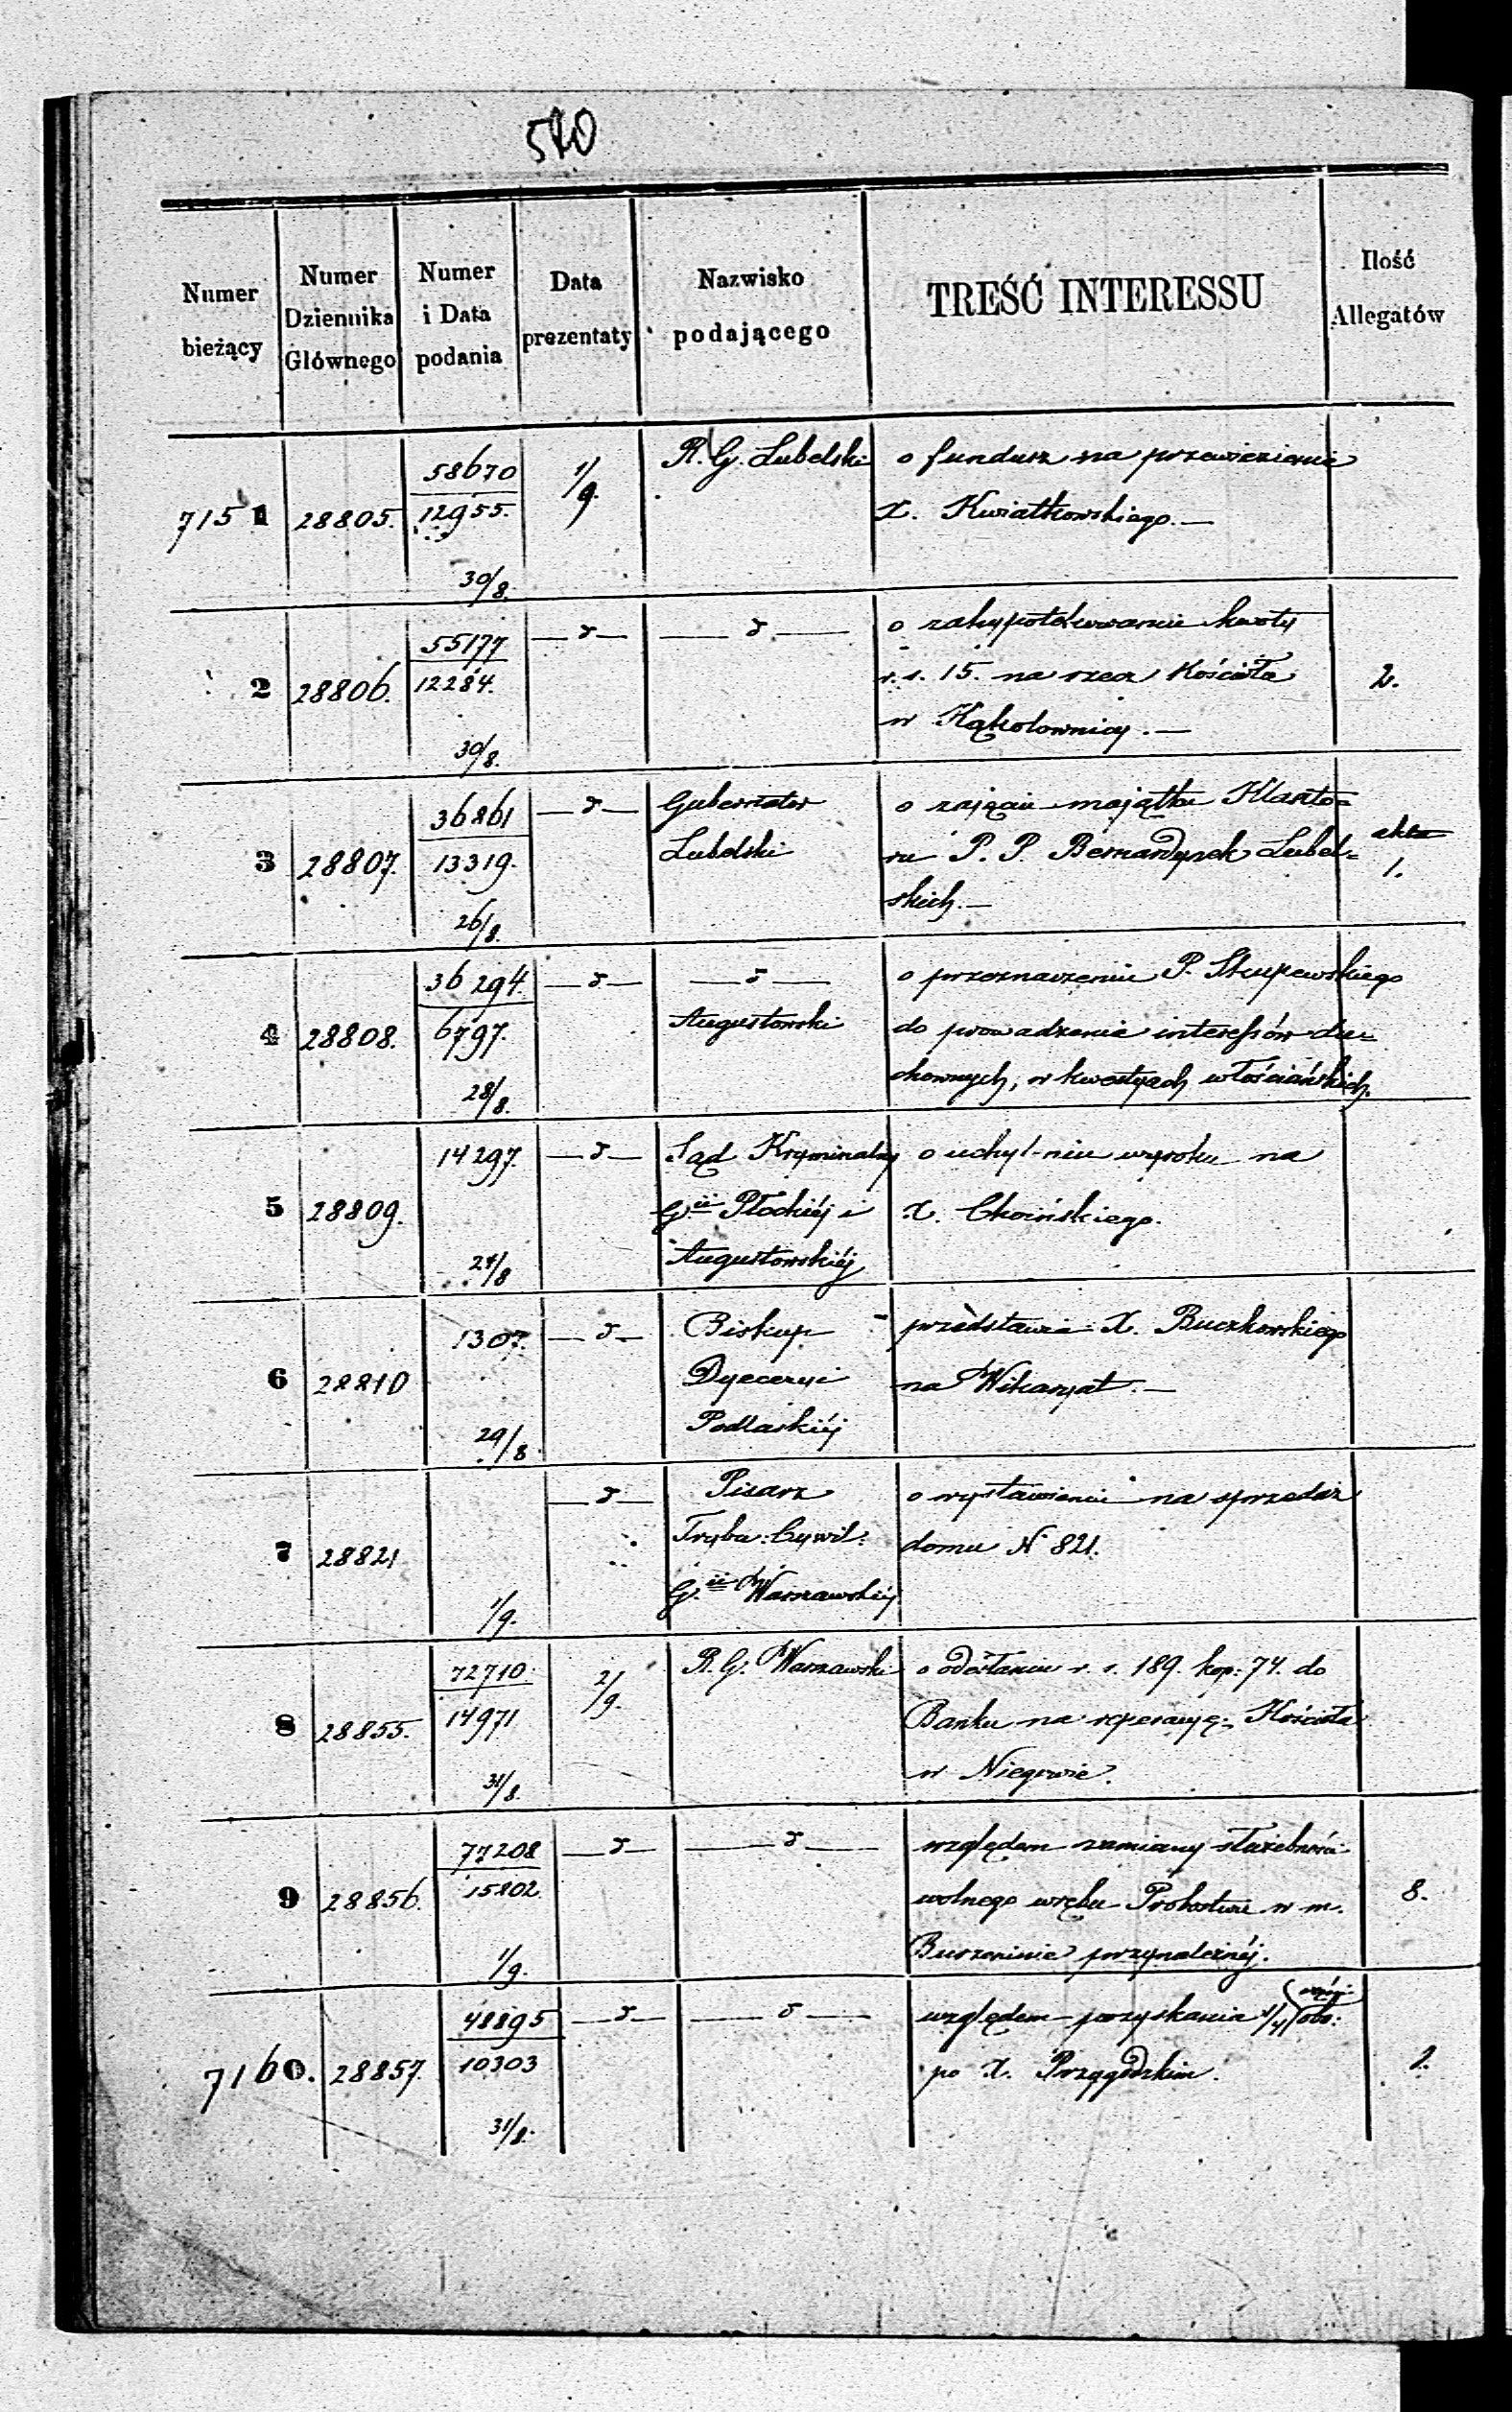 570
Numer bieżący | Numer Dziennika Głównego | Numer i Data podania | Data prezentaty | Nazwisko podającego | TREŚĆ INTERESSU | Ilość Allegatów
7151 | 28805. | 58670 / 12955. 30/8. | 1/9. | R. G. Lubelski | o fundusz na przewiezienie
X. Kwiatkowskiego.—
2 | 28806. | 55177 / 12284. 30/8. | —d— | —d— | o zahypotekowanie kwoty | 2.
r. s. 15. na rzecz Kościoła
w Kąkolownicy.—
3 | 28807. | 36861 / 13319. 26/8. | —d— | Gubernator | o zajęciu majątku Klaszto= | akta
Lubelski | ru P. P. Bernardynek Lubel= | 1.
skich.—
4 | 28808. | 36294. / 6797. 28/8. | —d— | —d— | o przeznaczeniu P.
Augustowski | do prowadzenia interessów du=
chownych, w kwestyach włościańskich.
5 | 28809. | 14297. 24/8 | —d— | Sąd Kryminalny | o uchyl-niu wyroku na
Gii Płockiéj i | X. Choińskiego.
Augustowskiéj
6 | 28810 | 1307. 29/8 | —d— | Biskup | przedstawia X. Buczkowskiego
Dyecezyi | na Wikaryat.—
Podlaskiéj
7 | 28821 | 1/9. | —d— | Pisarz | o wystawienie na sprzedaż
Trybu: Cywil: | domu N 821.
G.ii Warszawskiéj
8 | 28855. | 72710. / 14971 31/8. | 2/9. | R. G. Warszawski | o odesłanie r. s. 189. kop: 74. do
Banku na reperacyę Kościoła
w Niegowie.
9 | 28856. | 77208 / 15802. 1/9. | —d— | —d— | względem zamiany służebności
wolnego wrębu Probostwu w m. | 8.
Burzeninie przynależnéj.
7160. | 28857. | 48895 / 10303 31/8. | —d— | —d— | względem pozyskania
po X.